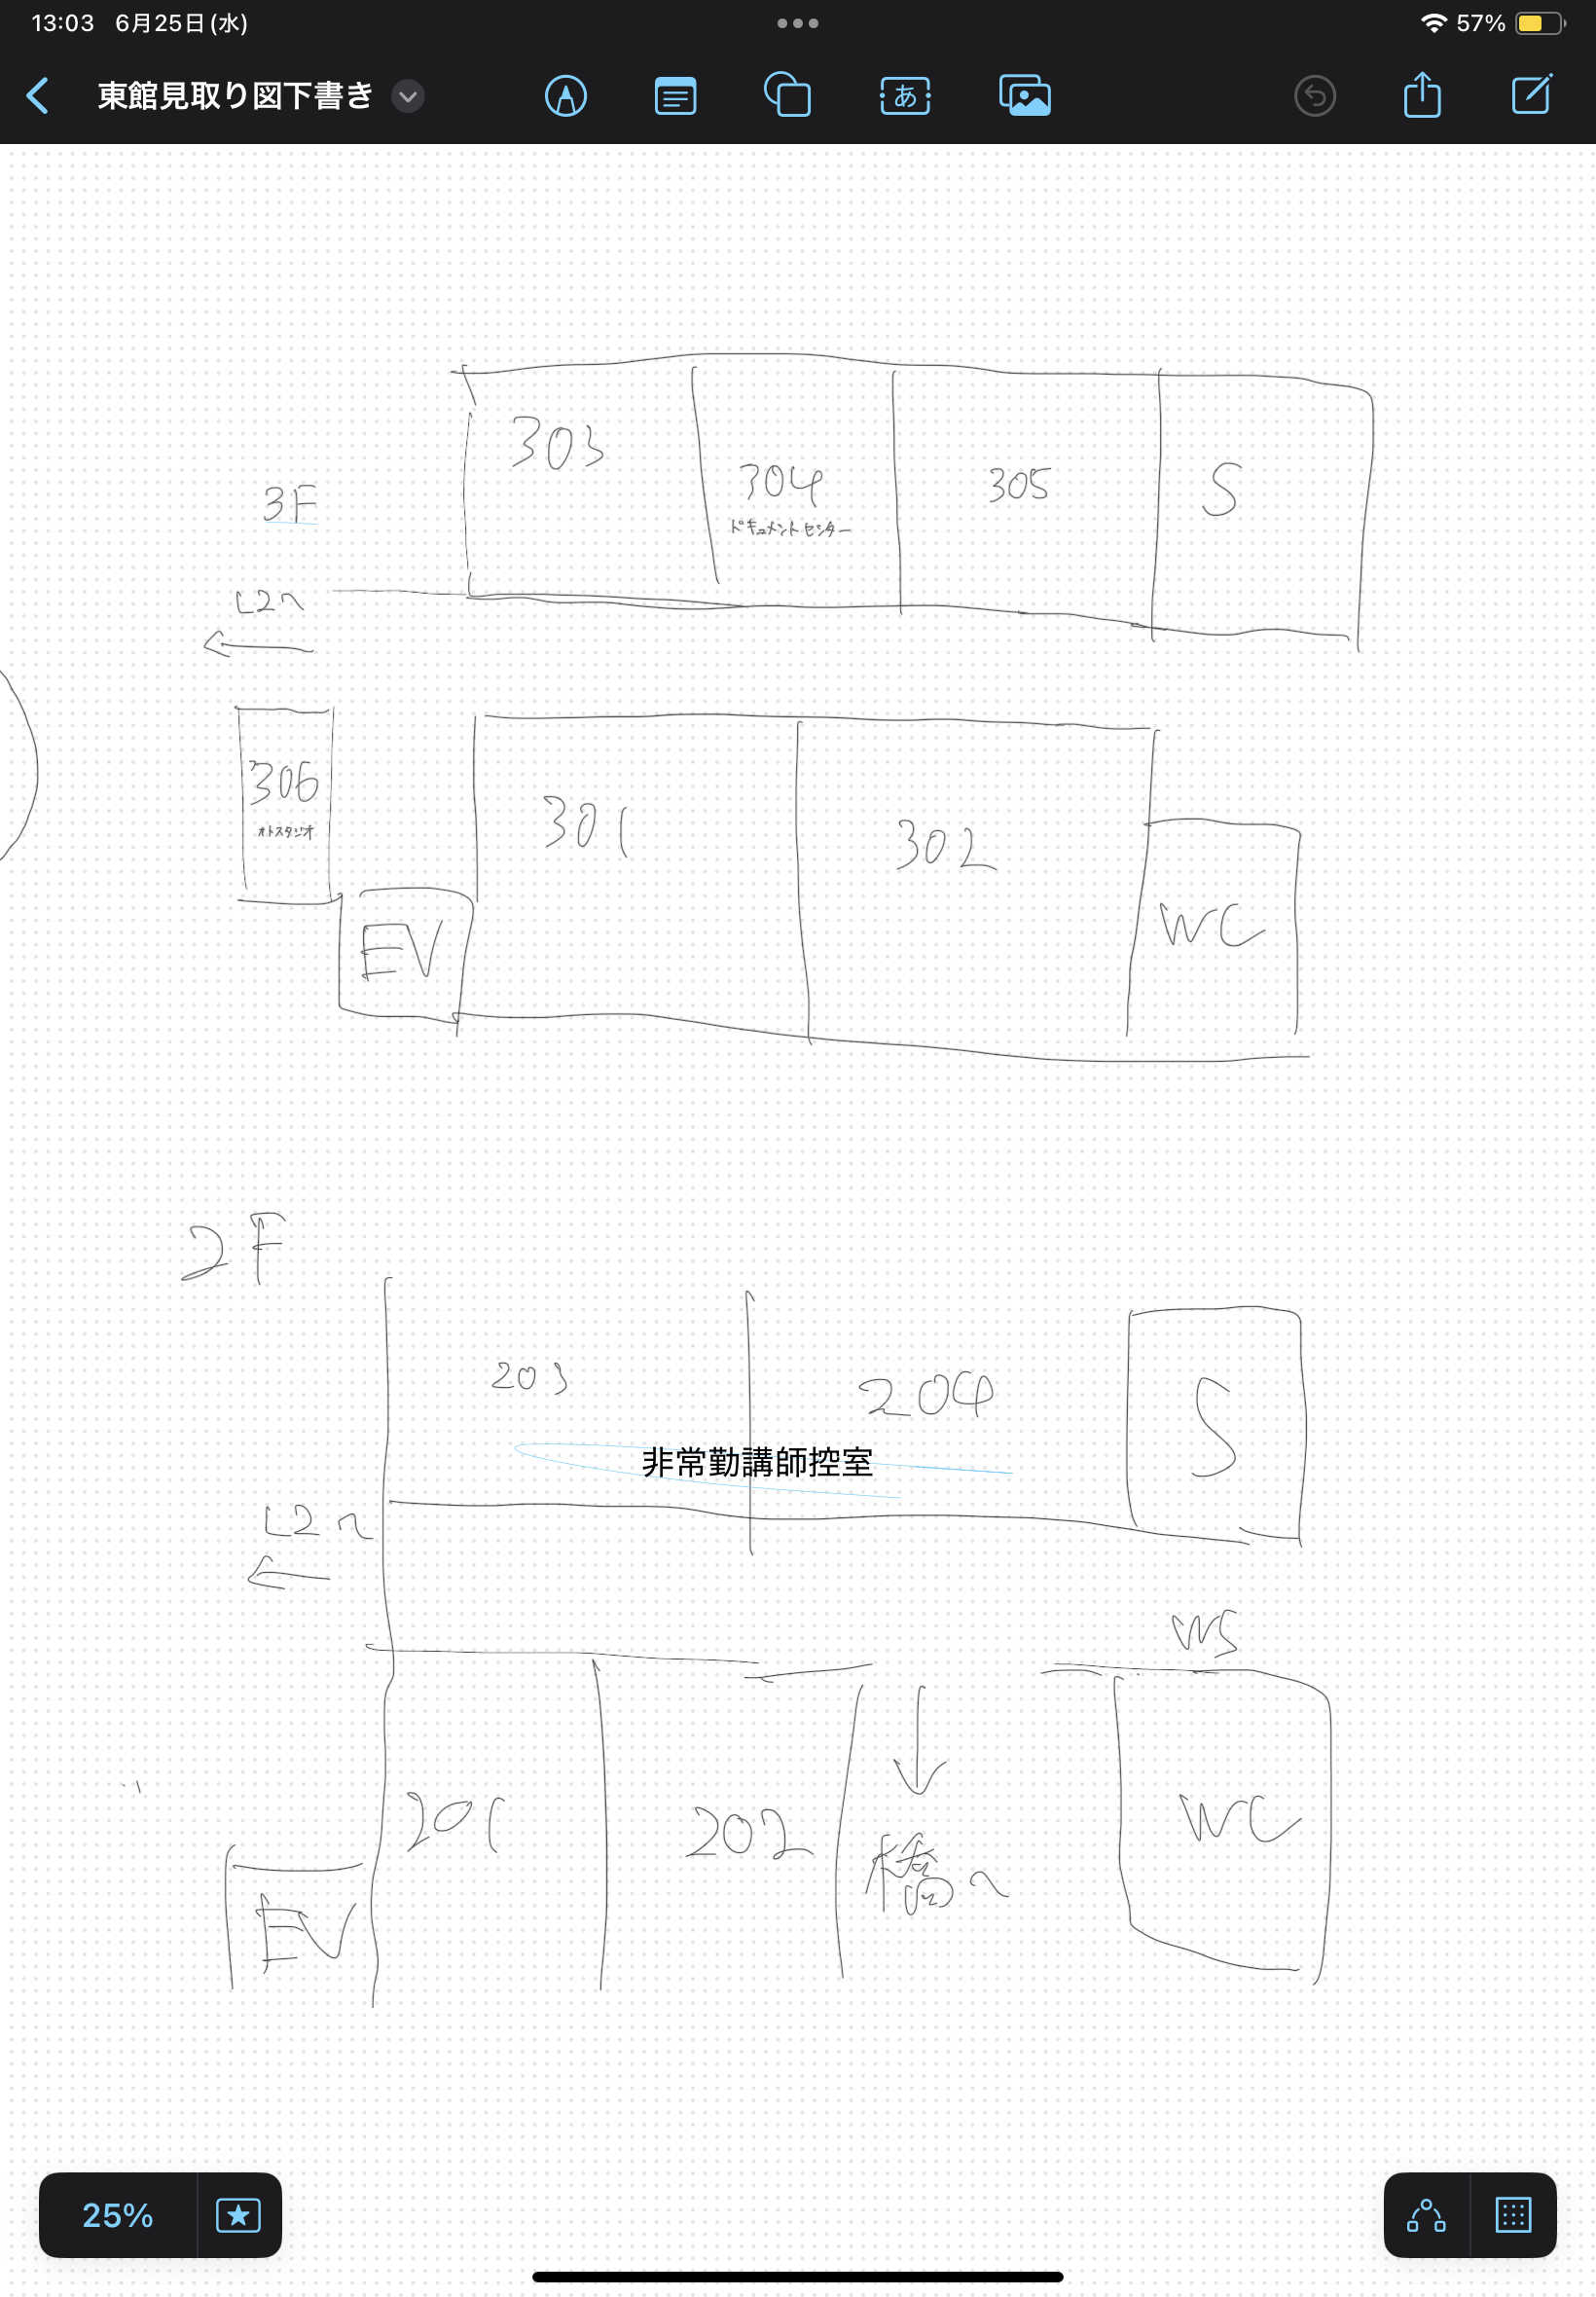 13:03 6月25日(水)
57%
東館見取り図下書き
あ
3F
303
304
ドキュメントセンター
305
S
L2へ
306
オトスタジオ
301
302
EV
WC
2F
203
204
S
非常勤講師控室
L2へ
WS
201
202
橋へ
WC
EV
25%